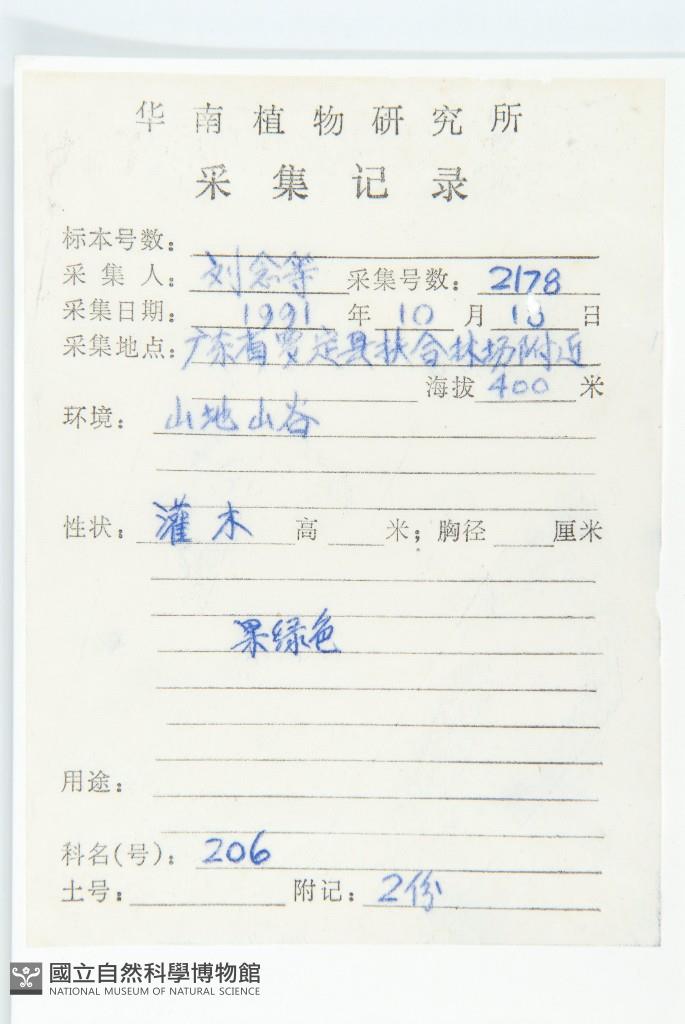 华南植物研究所
采集记录
标本号数：
采集人：刘念等 采集号数：2178
采集日期：1991年10月10日
采集地点：广东省罗定县扶合林场附近
海拔400米
环境：山地山谷
性状：灌木 高 米；胸径 厘米
果绿色
用途：
科名(号)：206
土号： 附记：2份
國立自然科學博物館
NATIONAL MUSEUM OF NATURAL SCIENCE